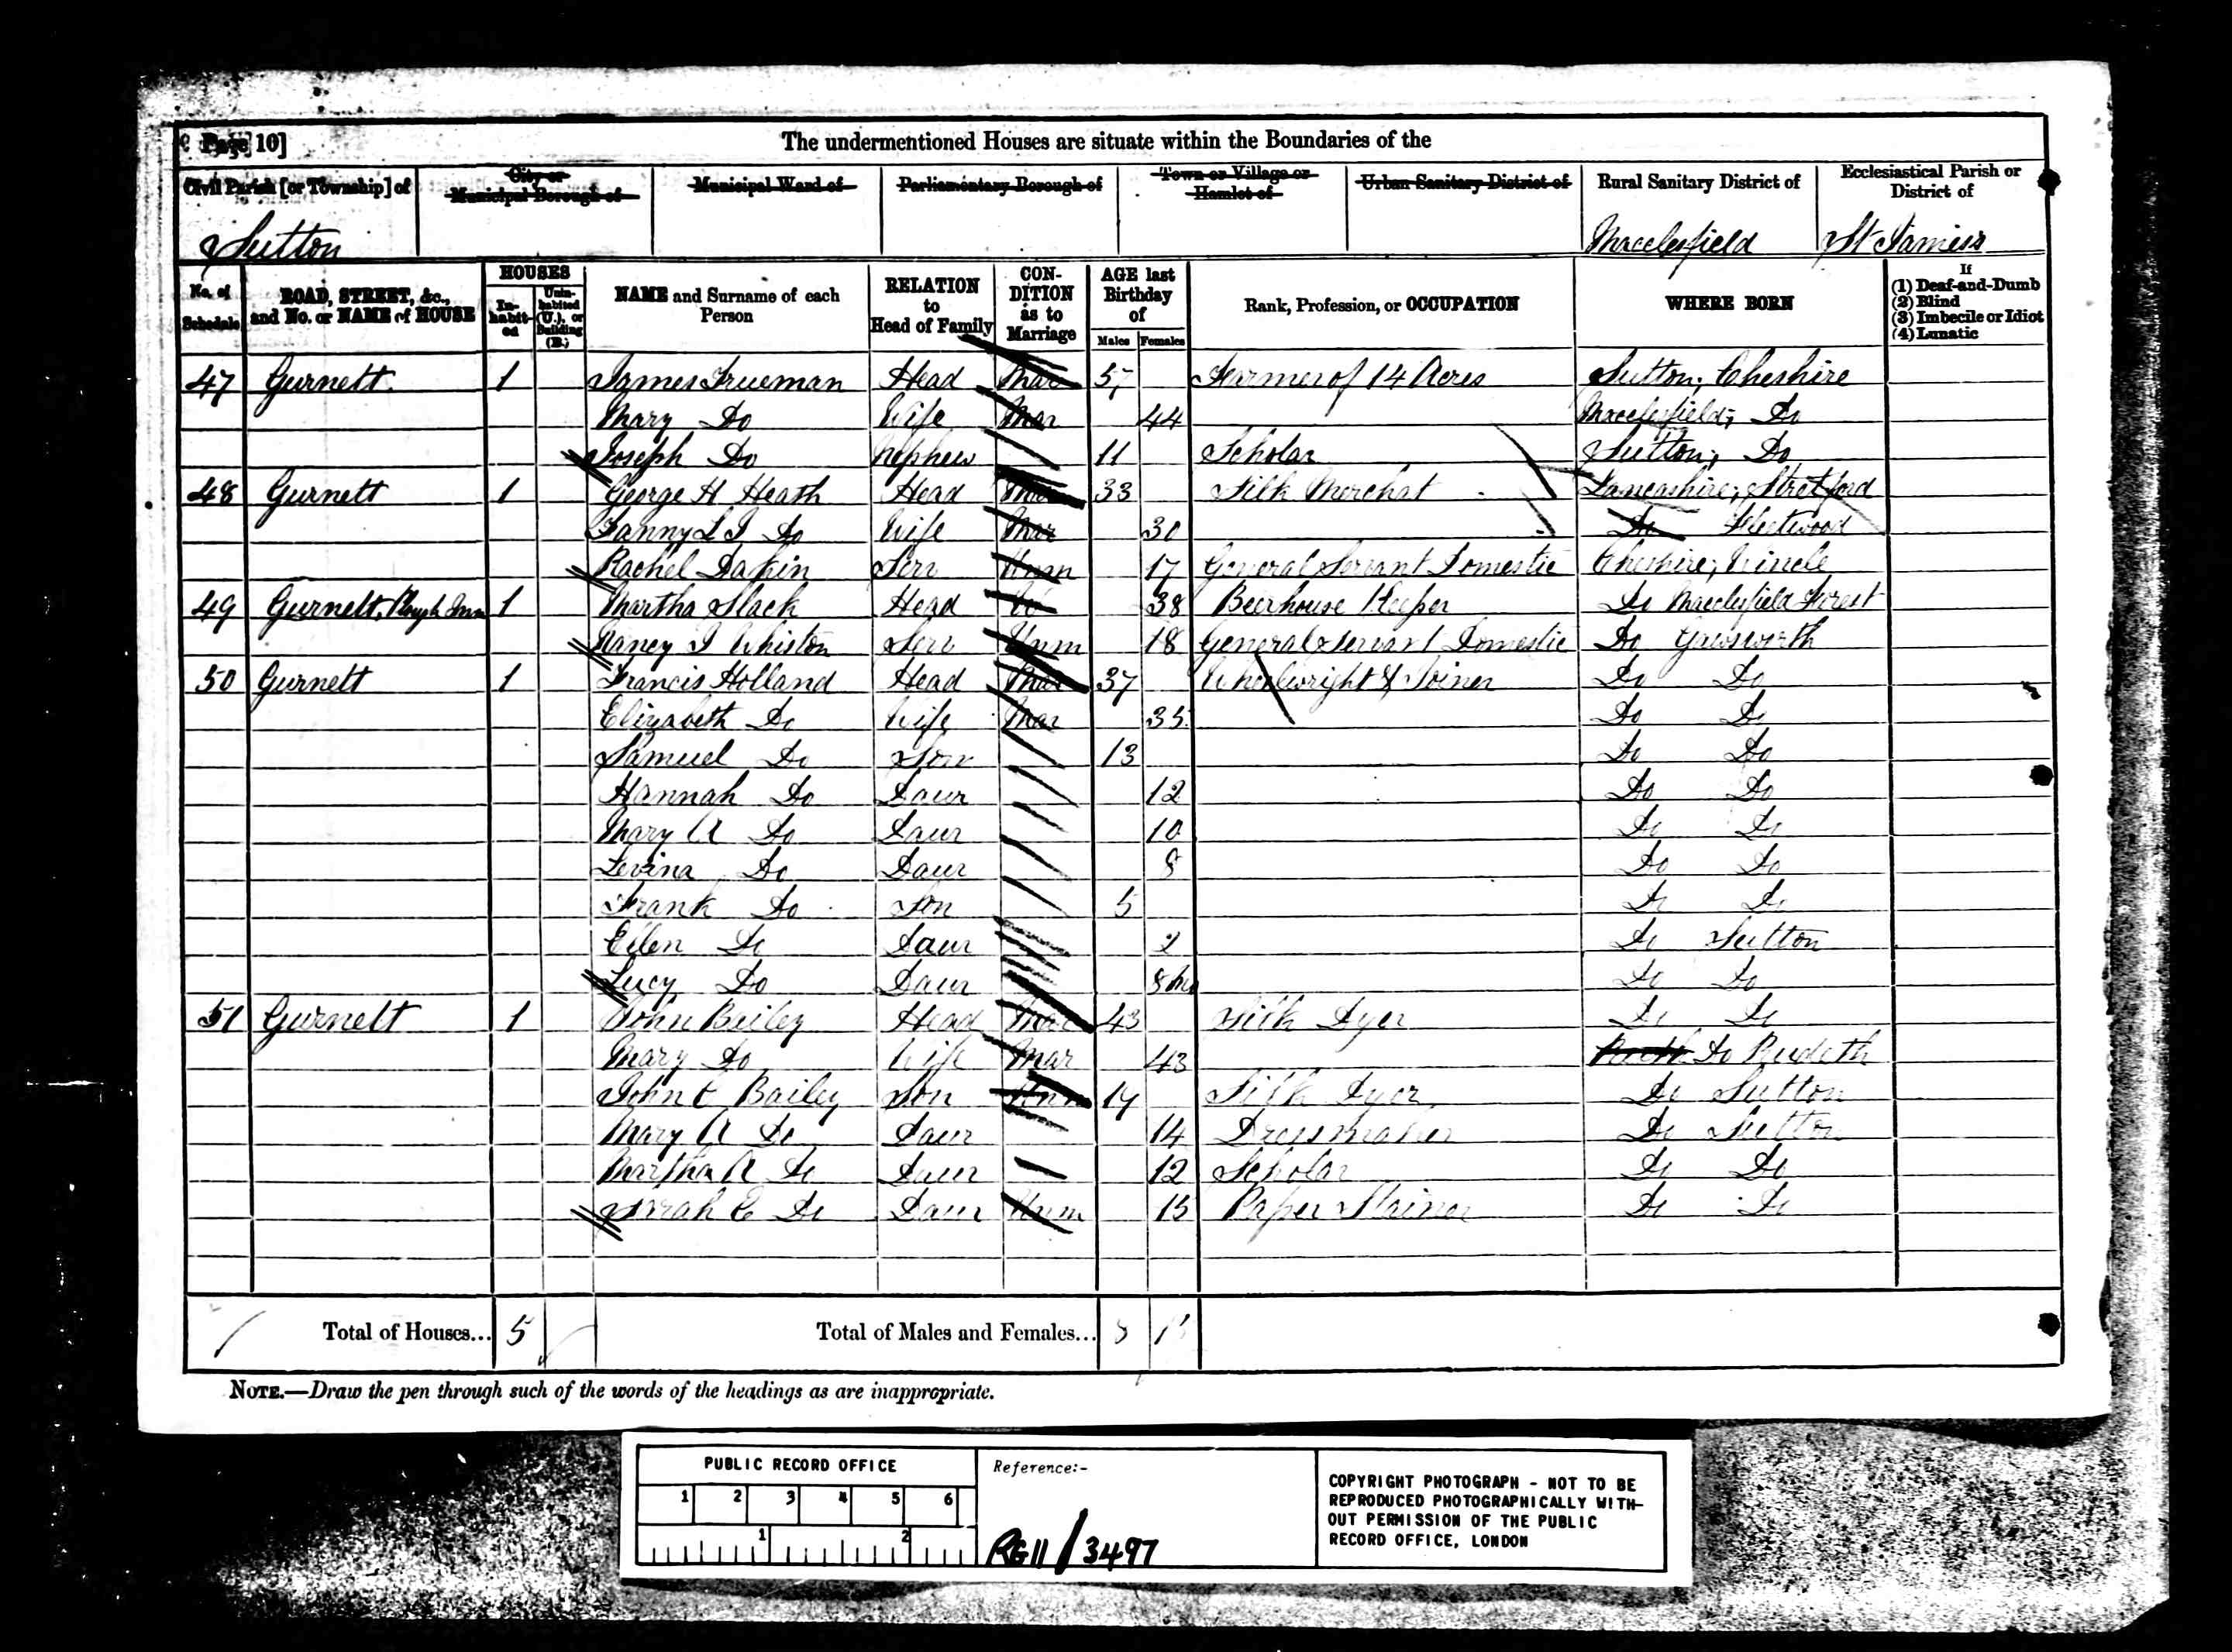 Page 10]
The undermentioned Houses are situate within the Boundaries of the
Civil Parish [or Township] of City or Municipal Borough of Municipal Ward of Parliamentary Borough of Town or Village or Hamlet of Urban Sanitary District of Rural Sanitary District of Ecclesiastical Parish or District of
Sutton Macclesfield St James's
No. of Schedule ROAD, STREET, &c., and No. or NAME of HOUSE HOUSES Inhabited Uninhabited (U.), or Building (B.) NAME and Surname of each Person RELATION to Head of Family CONDITION as to Marriage AGE last Birthday of Males Females Rank, Profession, or OCCUPATION WHERE BORN If (1) Deaf-and-Dumb (2) Blind (3) Imbecile or Idiot (4) Lunatic
47 Gurnett 1 James Trueman Head Mar 57 Farmer of 14 Acres Sutton, Cheshire
Mary Do Wife Mar 44 Macclesfield, Do
Joseph Do Nephew 11 Scholar Sutton, Do
48 Gurnett 1 George H Heath Head Mar 33 Silk Merchat Lancashire, Stretford
Fanny L I Do Wife Mar 30 Do Fleetwood
Rachel Dakin Serv Unm 17 General Servant Domestic Cheshire, Wincle
49 Gurnett, Plough Inn 1 Martha Slack Head W 38 Beerhouse Keeper Do Macclesfield Forest
Nancy J Whiston Serv Unm 18 General Servant Domestic Do Gawsworth
50 Gurnett 1 Francis Holland Head Mar 37 Wheelwright & Joiner Do Do
Elizabeth Do Wife Mar 35 Do Do
Samuel Do Son 13 Do Do
Hannah Do Daur 12 Do Do
Mary A Do Daur 10 Do Do
Levina Do Daur 8 Do Do
Frank Do Son 5 Do Do
Ellen Do Daur 2 Do Sutton
Lucy Do Daur 8 Mo Do Do
51 Gurnett 1 John Beiley Head Mar 43 Silk Dyer Do Do
Mary Do Wife Mar 43 Do Rudeth
John C Bailey Son Unm 17 Silk Dyer Do Sutton
Mary A Do Daur 14 Dressmaker Do Sutton
Martha A Do Daur 12 Scholar Do Do
Sarah E Do Daur Unm 15 Paper Stainer Do Do
Total of Houses... 5 Total of Males and Females...
NOTE.—Draw the pen through such of the words of the headings as are inappropriate.
PUBLIC RECORD OFFICE
1 2 3 4 5 6
1 2
Reference:-
RG11/3497
COPYRIGHT PHOTOGRAPH - NOT TO BE
REPRODUCED PHOTOGRAPHICALLY WITH-
OUT PERMISSION OF THE PUBLIC
RECORD OFFICE, LONDON